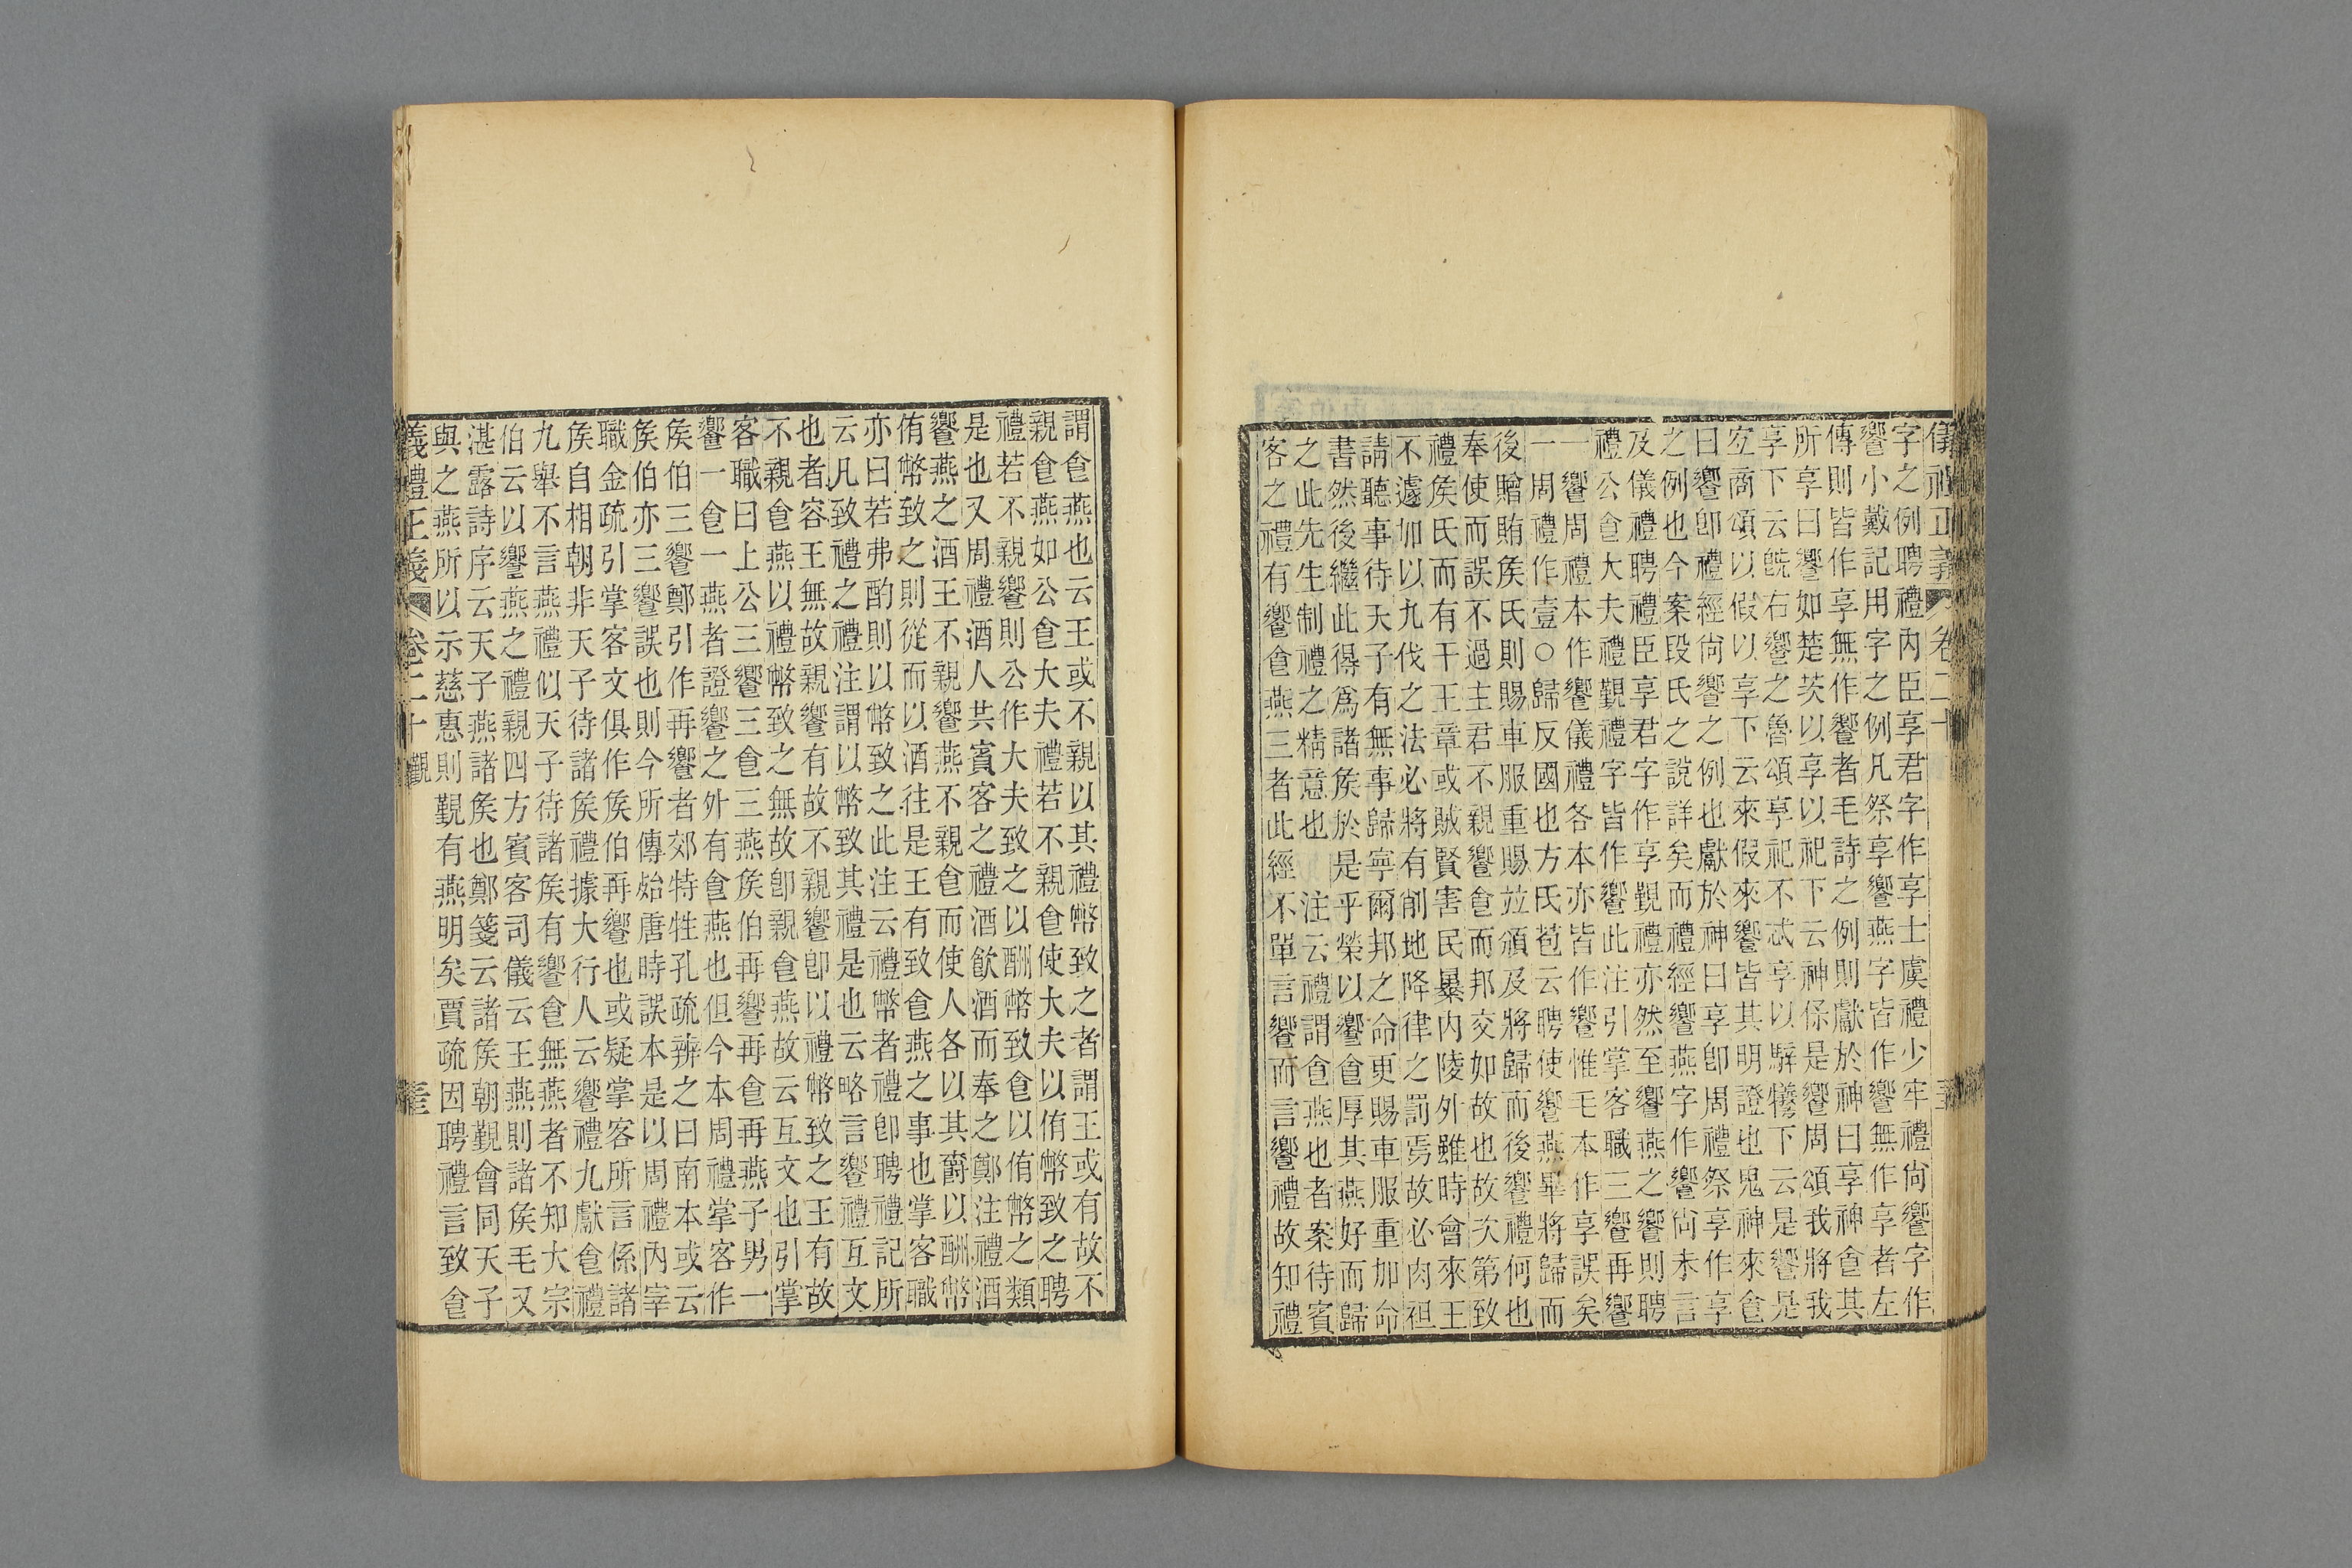 儀禮正義 卷二十
字之例聘禮內臣享君字作享士虞禮少牢禮尙饗字作
饗小戴記用字之例凡祭享饗燕字皆作饗無作享者左
傳則皆作享無作饗者毛詩之例則獻於神曰享神㑹其
所享曰饗如楚茨以享以祀下云神保是饗周頌我將我
享下云旣右饗之魯頌享祀不忒享以騂犧下云是饗是
宐商頌以假以享下云來假來饗皆其明證也鬼神來㑹
曰饗卽禮經尙饗之例也獻於神曰享卽周禮祭享作享
之例也今案段氏之說詳矣而禮經饗燕字作饗尙未言
及儀禮聘禮臣享君字作享覲禮亦然至饗燕之饗則聘
禮公㑹大夫禮覲禮字皆作饗此注引掌客職三饗再饗
一饗周禮本作饗儀禮各本亦皆作饗惟毛本作享誤矣
一周禮作壹○歸反國也方氏苞云聘使饗燕畢將歸而
後贈賄矦氏則賜車服重賜竝頒及將歸而後饗禮何也
奉使而誤不過主君不親饗㑹而邦交如故也故次第致
禮矦氏而有干王章或賊賢害民暴內陵外雖時會來王
不遽加以九伐之法必將有削地降律之罰焉故必肉袒
請聽事待天子有無事歸寧爾邦之命更賜車服重加命
書然後繼此得爲諸矦於是乎榮以饗㑹厚其燕好而歸
之此先生制禮之精意也 注云禮謂㑹燕也者案待賓
客之禮有饗㑹燕三者此經不單言饗而言饗禮故知禮
謂㑹燕也云王或不親以其禮幣致之者謂王或有故不
親㑹燕如公㑹大夫禮若不親㑹使大夫以侑幣致之聘
禮若不親饗則公作大夫致之以酬幣致㑹以侑幣之類
是也又周禮酒人共賓客之禮酒飮酒而奉之鄭注禮酒
饗燕之酒王不親饗燕不親㑹而使人各以其爵以酬幣
侑幣致之則從而以酒往是王有致㑹燕之事也掌客職
亦曰若弗酌則以幣致之此注云禮幣者禮卽聘禮記所
云凡致禮之禮注謂以幣致其禮是也云略言饗禮互文
也者容王無故親饗有故不親饗卽以禮幣致之王有故
不親㑹燕以禮幣致之無故卽親㑹燕故云互文也引掌
客職曰上公三饗三㑹三燕矦伯再饗再㑹再燕子男一
饗一㑹一燕者證饗之外有㑹燕也但今本周禮掌客作
矦伯三饗鄭引作再饗者郊特牲孔疏辨之曰南本或云
矦伯亦三饗誤也則今所傳始唐時誤本是以周禮內宰
職金疏引掌客文俱作矦伯再饗也或疑掌客所言係諸
矦自相朝非天子待諸矦禮據大行人云饗禮九獻㑹禮
九舉不言燕禮似天子待諸矦有饗㑹無燕者不知大宗
伯云以饗燕之禮親四方賓客司儀云王燕則諸矦毛又
湛露詩序云天子燕諸矦也鄭箋云諸矦朝覲會同天子
與之燕所以示慈惠則覲有燕明矣賈疏因聘禮言致㑹
義禮正義 卷二十 覲